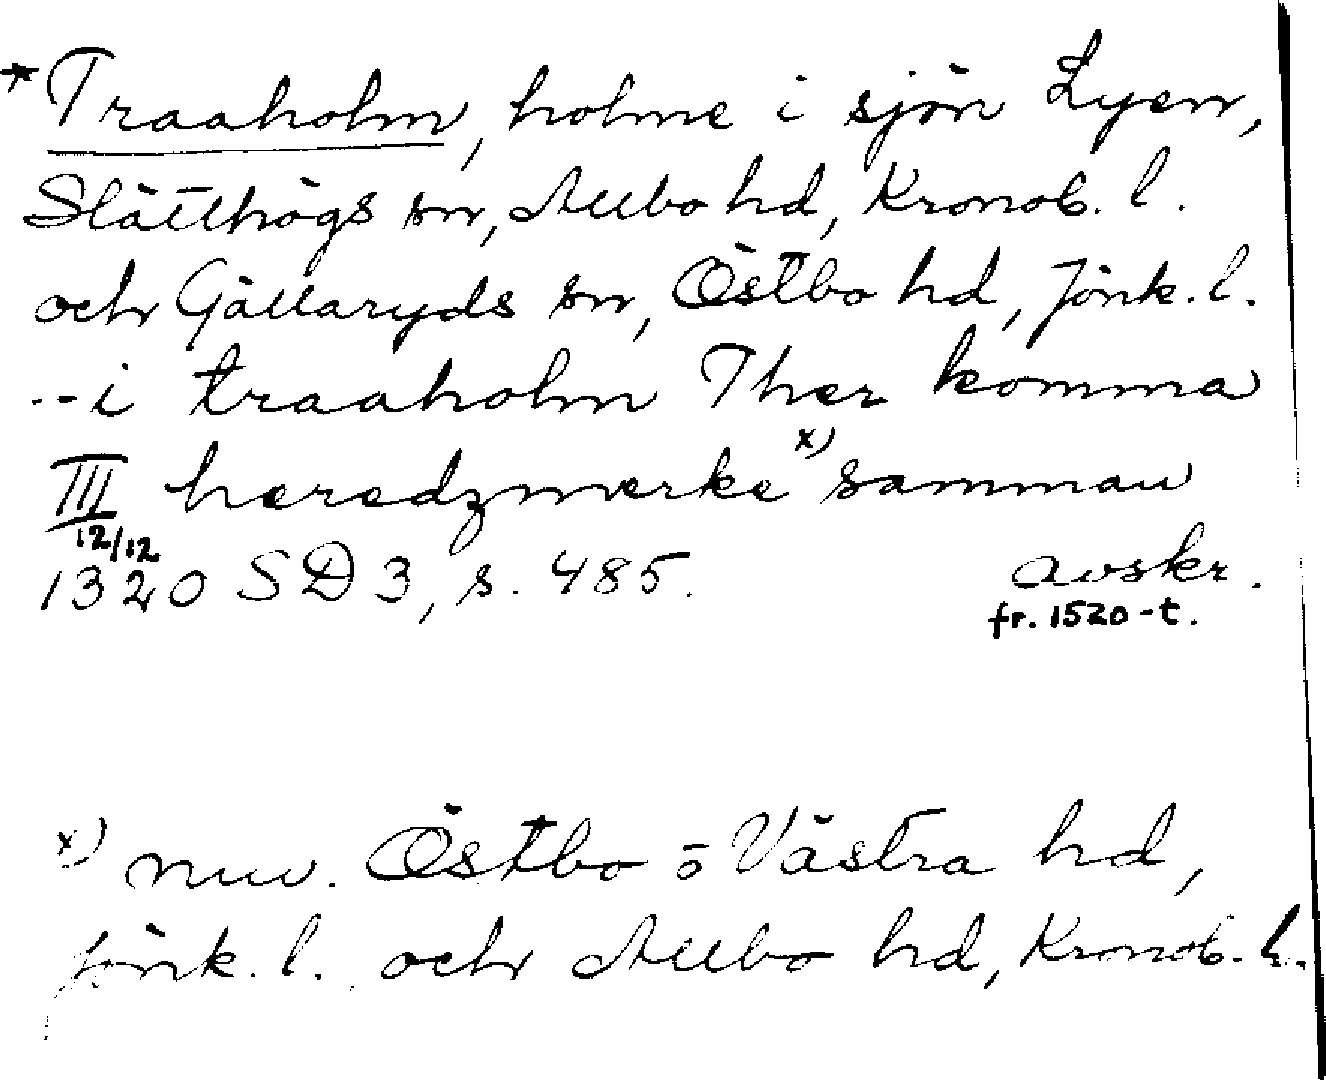 *Traaholm, holme i sjön Lyen,
Slätthögs sn, Allbo hd, Kronob. l.
och Gällaryds sn, Östbo hd, Jönk. l.
-- i traaholm Ther komma
III heredzmerke x) samman
12/12
1320 SD 3, s. 485. avskr.
fr. 1520-t.
x) nuv. Östbo o Västra hd,
Jönk. l. och Allbo hd, Kronob. l.